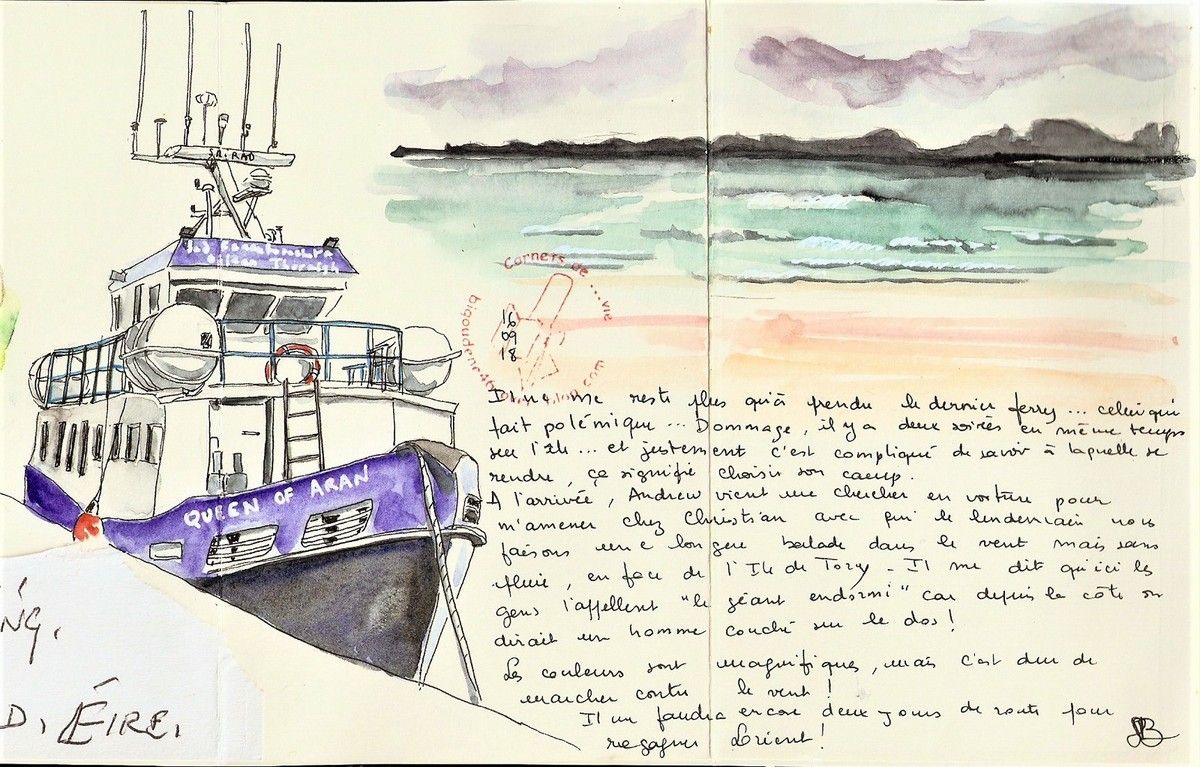 SR.RAD
QUEEN OF ARAN
Carnets de ... vie
16
09
18
NG.
D, ÉIRE.
Il ne me reste plus qu'à prendre le dernier ferry ... celui qui
fait polémique ... Dommage, il y a deux soirées en même temps
sur l'île ... et justement c'est compliqué de savoir à laquelle se
rendre, ça signifie choisir son camp.
A l'arrivée, Andrew vient me chercher en voiture pour
m'amener chez Christian avec qui le lendemain nous
faisons une longue balade dans le vent mais sans
pluie, en face de l'Ile de Tory - Il me dit qu'ici les
gens l'appellent "le géant endormi" car depuis la côte on
dirait un homme couché sur le dos !
Les couleurs sont magnifiques, mais c'est dur de
marcher contre le vent !
Il me faudra encore deux jours de route pour
regagner Lorient !